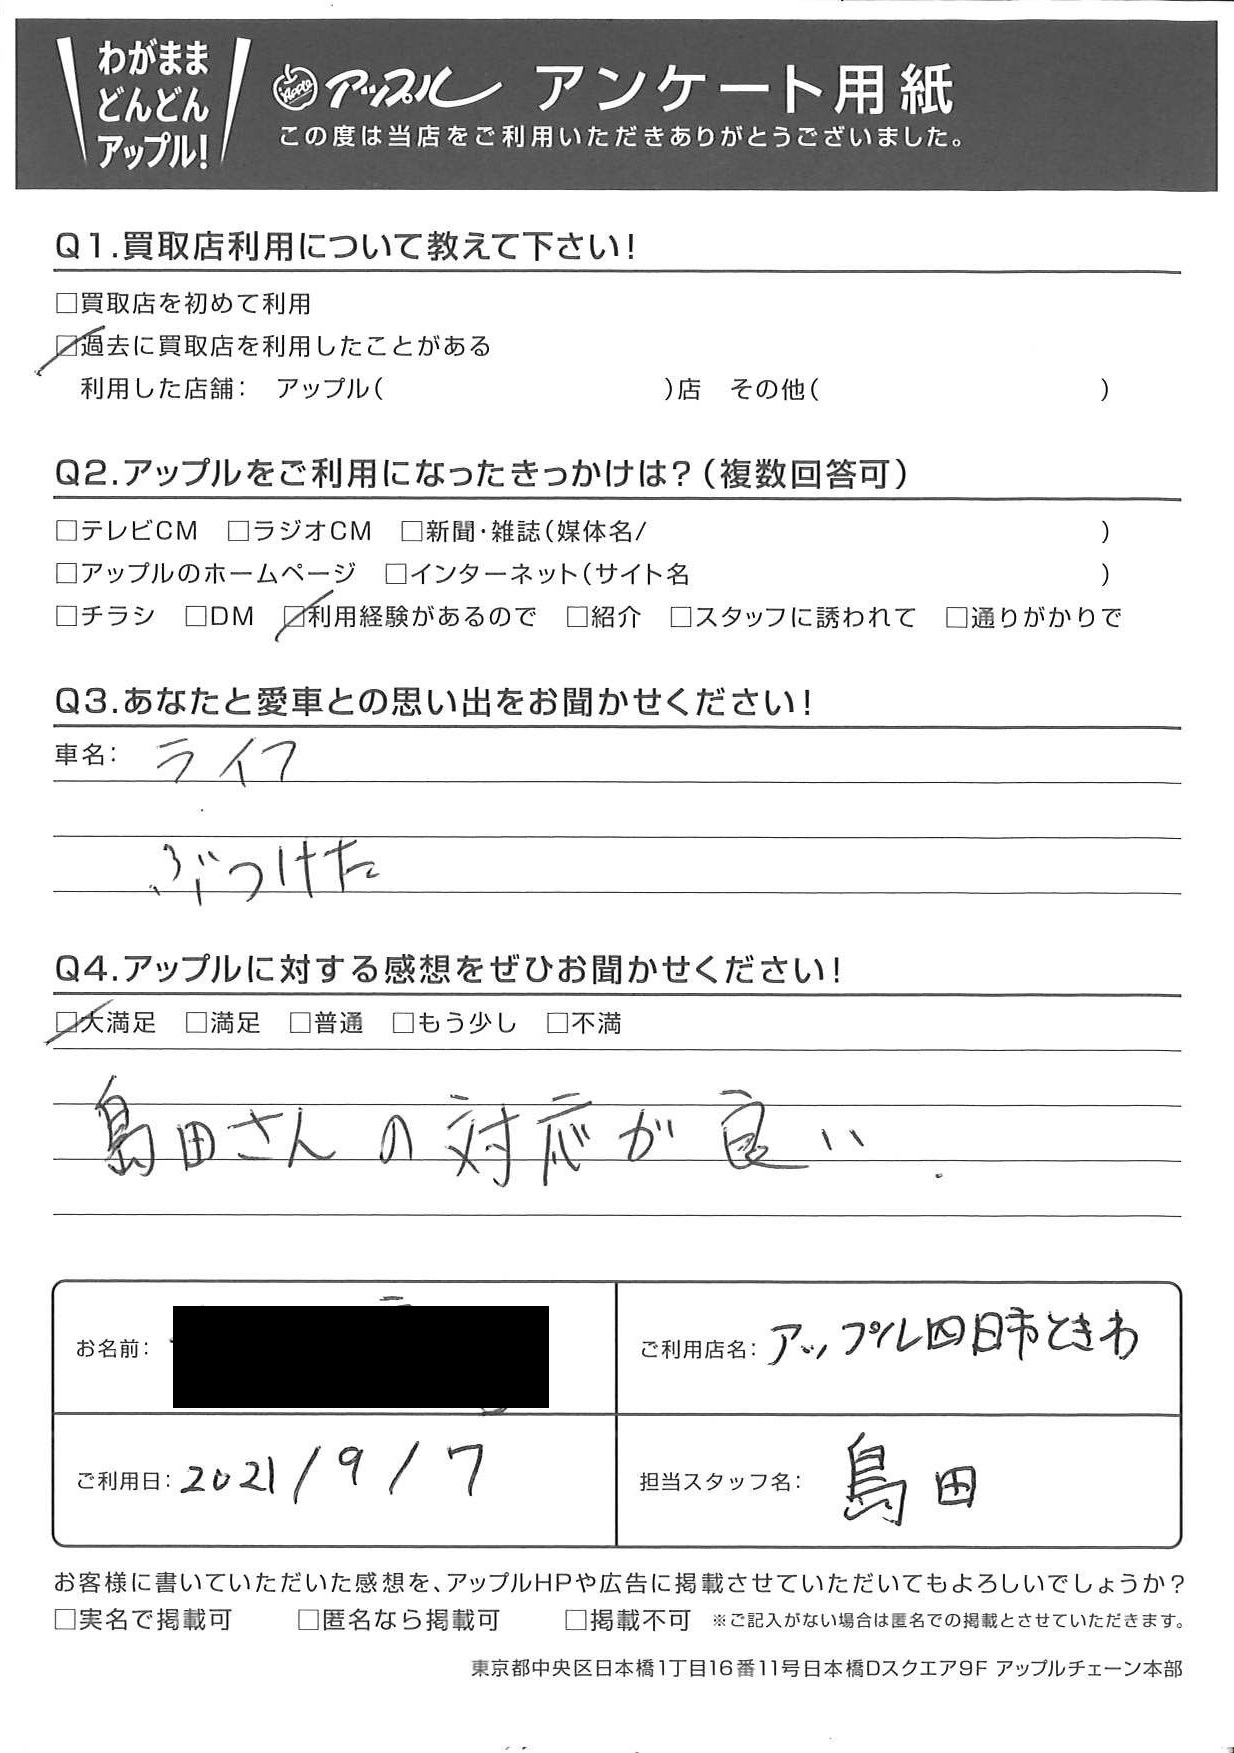 わがまま
どんどん
アップル!
Apple アップル アンケート用紙
この度は当店をご利用いただきありがとうございました。
Q1.買取店利用について教えて下さい!
□買取店を初めて利用
□過去に買取店を利用したことがある
利用した店舗: アップル( )店 その他( )
Q2.アップルをご利用になったきっかけは?(複数回答可)
□テレビCM □ラジオCM □新聞・雑誌(媒体名/ )
□アップルのホームページ □インターネット(サイト名 )
□チラシ □DM □利用経験があるので □紹介 □スタッフに誘われて □通りがかりで
Q3.あなたと愛車との思い出をお聞かせください!
車名: ライフ
ぶつけた
Q4.アップルに対する感想をぜひお聞かせください!
□大満足 □満足 □普通 □もう少し □不満
島田さんの対応が良い.
お名前:
ご利用店名: アップル四日市ときわ
ご利用日: 2021/9/7
担当スタッフ名: 島田
お客様に書いていただいた感想を、アップルHPや広告に掲載させていただいてもよろしいでしょうか?
□実名で掲載可 □匿名なら掲載可 □掲載不可 ※ご記入がない場合は匿名での掲載とさせていただきます。
東京都中央区日本橋1丁目16番11号日本橋Dスクエア9F アップルチェーン本部